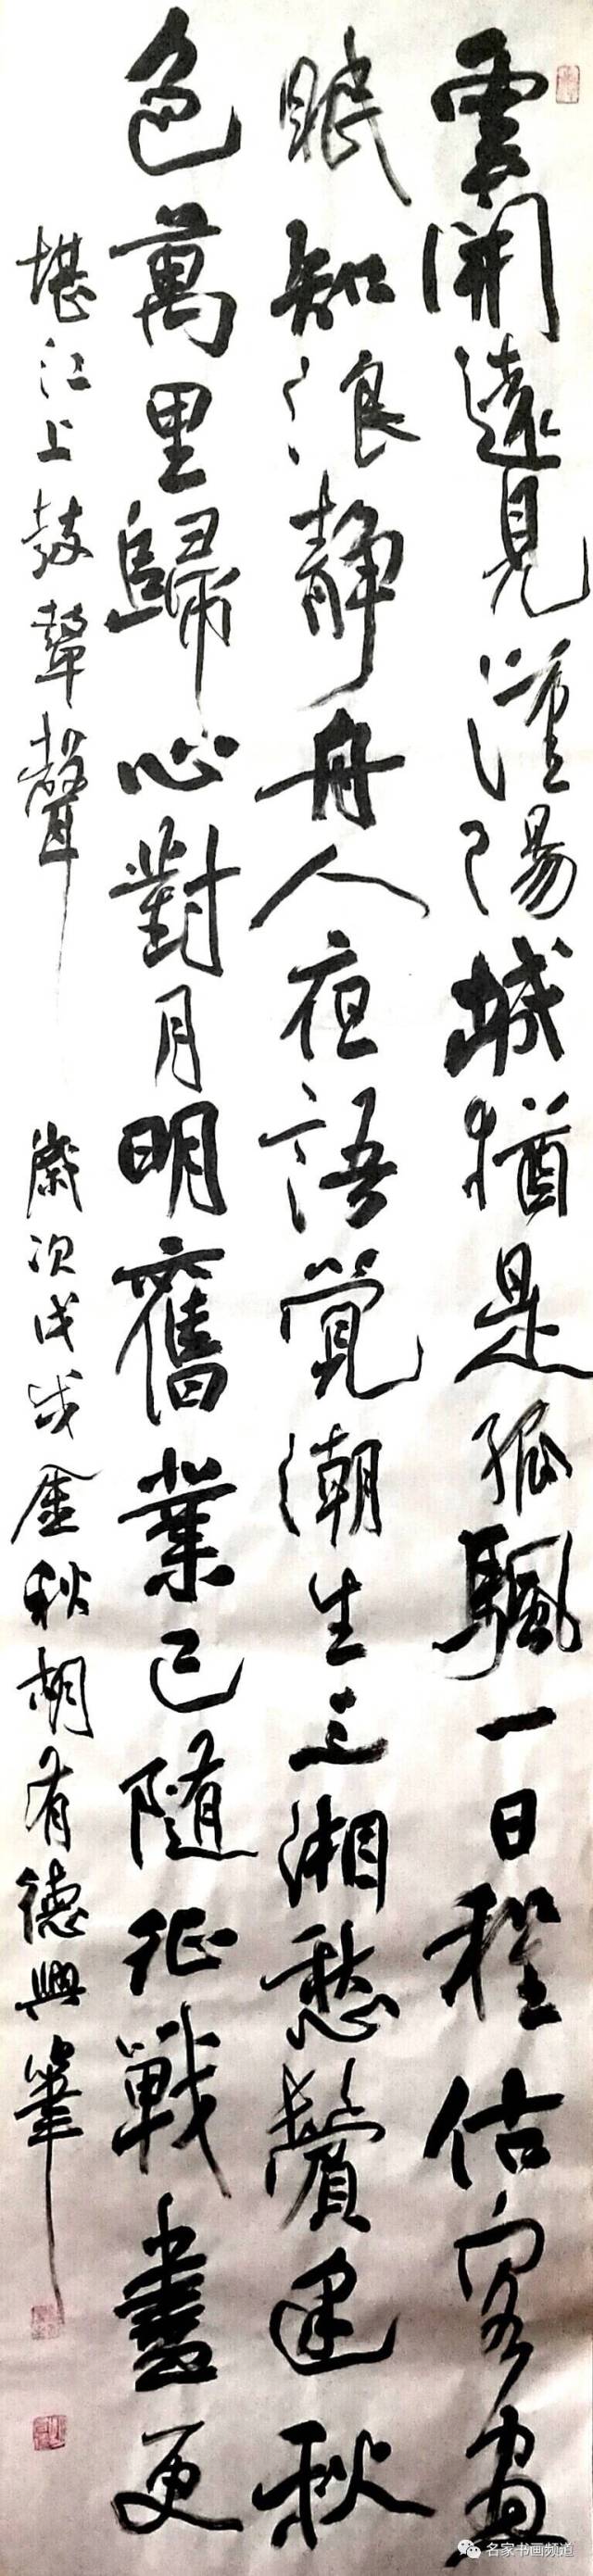 雲開遠見漢陽城猶是孤颿一日程估客晝
眠知浪靜舟人夜語覺潮生三湘愁鬢逢秋
色萬里歸心對月明舊業已隨征戰盡更
堪江上鼓鼙聲
歲次戊戌金秋胡有德興筆
名家书画频道